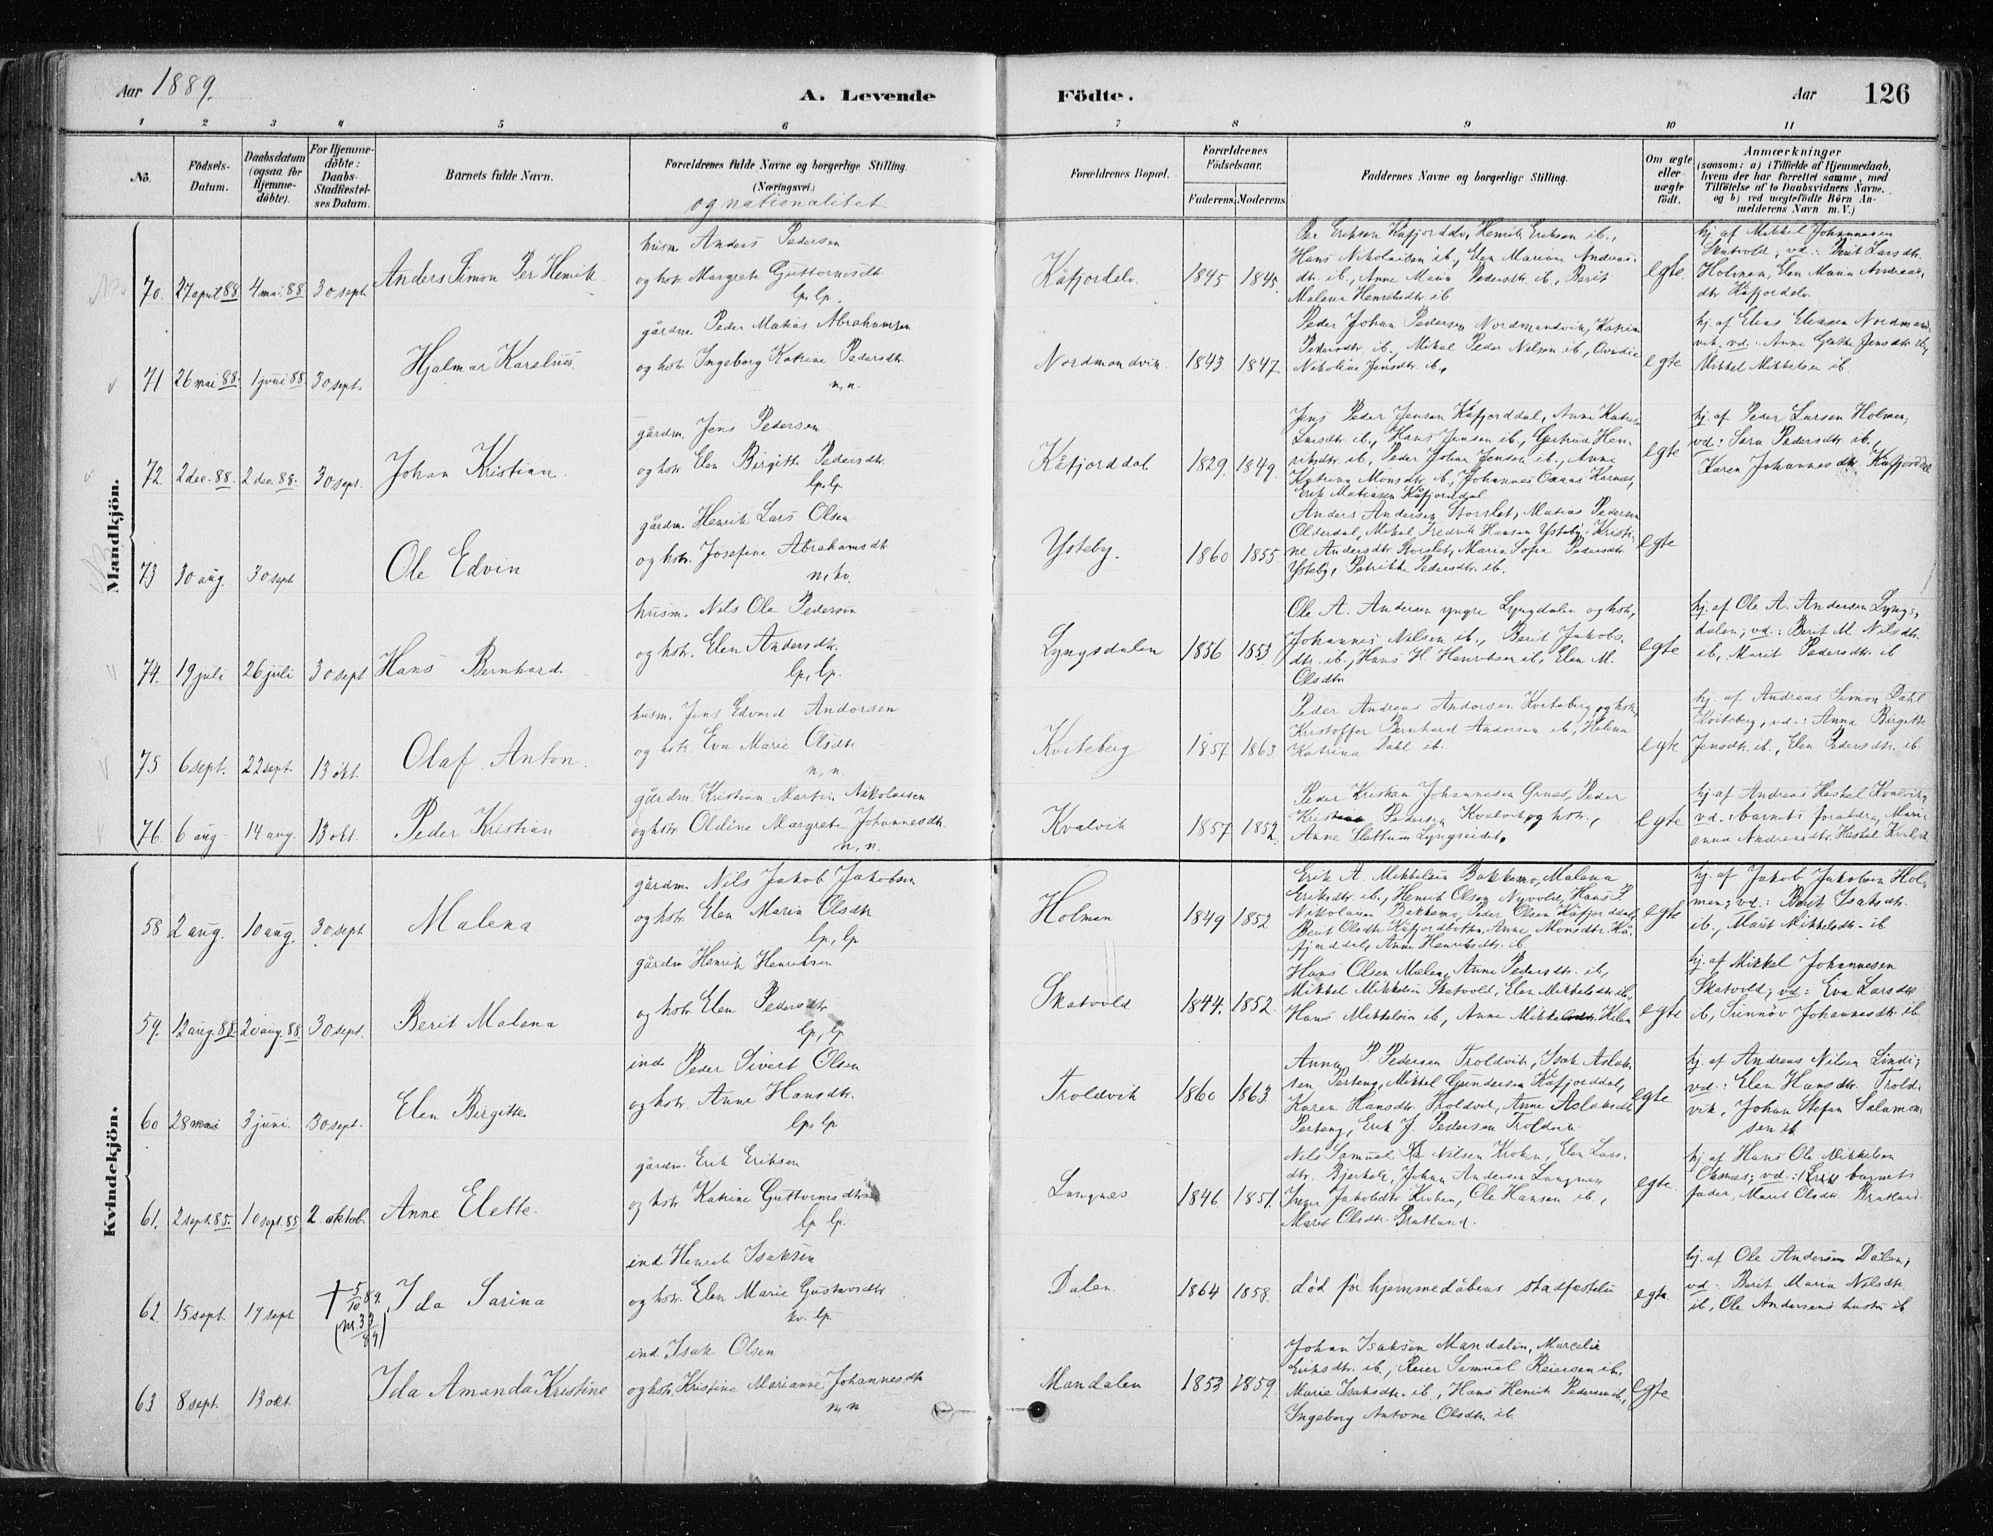 Aar 1889.
A. Levende Födte.
Aar 126
1 2 3 4 5 6 7 8 9 10 11
No.
Födsels-Datum.
Daabsdatum (ogsaa for Hjemme-döbte).
For Hjemme-döbte: Daabs-Stadfæstel-ses Datum.
Barnets fulde Navn.
Forældrenes fulde Navne og borgerlige Stilling.
(Næringsvei.)
og nationalitet
Forældrenes Bopæl.
Forældrenes Födselsaar.
Faderens. Moderens.
Faddernes Navne og borgerlige Stilling.
Om ægte eller uægte födt.
Anmærkninger
(saasom: a) i Tilfælde af Hjemmedaab,
hvem der har forrettet samme, med
Tilföielse af to Daabsvidners Navne.
og b) ved uægtefödte Börn An-
melderens Navn m. V.)
Mandkjön.
70. 27 april 88 4 mai 88 30 sept. Anders Simon Per Henrik
husm. Anders Pedersen
og hstr. Margrete Guttormsdtr.
lp. lp.
Kåfjordelv. 1845 1845.
Per Eriksen Kåfjordelv, Henrik Eriksen ib.,
Hans Nikolaisen ib., Elen Mariane Andreas-
dtr. ib., Anne Maria Pedersdtr. ib., Berit
Malena Henriksdtr. ib.
egte.
hj. af Mikkel Johannesen
Skatvold, vd.: Berit Larsdtr.
Holmen, Elen Maria Andreas-
dtr. Kåfjordelv.
71 26 mai 88. 1 juni 88. 30 sept. Hjalmar Karelius.
gårdm. Peder Matias Abrahamsen
og hstr. Ingeborg Katrine Pedersdtr.
n, n.
Nordmandvik. 1843 1847
Peder Johan Pedersen Nordmandvik, Katrine
Pedersdtr. ib., Mikal Peder Nilsen ib.,
Nikoline Jensdtr. ib.
egte
hj. af Elias Eliasen Nordmand-
vik. vd.: Anne Jensdtr. ib,
Mikkel Mikkelsen ib.
72. 2 dec. 88. 2 dec. 88. 30 sept. Johan Kristian.
gårdm. Jens Pedersen
og hstr. Elen Birgitte Pedersdtr.
lp, lp.
Kåfjorddal 1829. 1849.
Jens Peder Jensen Kåfjorddal, Anne Katrine
Larsdtr. ib., Hans Jensen ib., Gertrud Hen-
riksdtr. ib., Peder Johan Jensen ib., Anne
Katrina Monsdtr. ib., Johannes Karnes,
Erik Matiasen Kåfjorddal
egte
hj. af Peder Larsen Holmen;
vd: Sara Pedersdtr. ib.,
Karen Johannesdtr. Kåfjorddal
73 30 aug. 30 sept Ole Edvin
gårdm. Henrik Lars Olsen
og hstr. Josefine Abrahamsdtr.
n, kv.
Ysteby. 1860 1855.
Anders Andersen Storslet, Matias Pedersen
Olderdal, Mikal Fredrik Hansen Ysteby, Kristi-
ne Andersdtr. Storslet, Maria Sofia Pedersdtr.
Ysteby, Petrikke Pedersdtr. ib.
egte
74. 19 juli 26 juli 30 sept Hans Bernhard.
husm. Nils Ole Pedersen
og hstr. Elen Andersdtr.
lp, lp.
Lyngsdalen 1856 1853
Ole A. Andersen yngre Lyngdalen og hstr.,
Johannes Nilsen ib., Berit Jakobs-
dtr. ib., Hans H Henriksen ib., Elen M.
Olsdtr.
egte
hj. af Ole A. Andersen Lyngs-
dalen; vd.: Berit M. Nilsdtr.
ib, Marit Pedersdtr. ib
75 6 sept. 22 sept. 13 okt. Olaf Anton.
husm. Jens Edvard Andorsen
og hstr. Eva Marie Olsdtr.
n, n.
Kviteberg 1857 1863
Peder Andreas Andorsen Kviteberg og hstr,
Kristoffer Bernhard Andorsen ib, Helena
Katrina Dahl ib.
egte
hj. af Andreas Simon Dahl
Kviteberg, vd.: Anna Birgitte
Jensdtr. ib., Elen Pedersdtr. ib
76. 6 aug. 14 aug. 13 okt. Peder Kristian
gårdm. Kristian Martin Nikolaisen
og hstr. Oldine Margrete Johannesdtr.
n, n.
Kvalvik 1857 1852.
Peder Kristian Johannesen Grnes, Peder
Pedersen Kvalvik og hstr.,
Anne Slettum Lyngseidet.
egte
hj. af Andreas Heskel Kvalvik,
vd. barnets forældre, Mari-
anna Andreasdtr. Heskel Kvalvik
Kvindekjön.
58 2 aug. 10 aug. 30 sept Malena
gårdm. Nils Jakob Jakobsen
og hstr. Elen Maria Olsdtr
lp, lp
Holmen 1849 1852
Erik A. Mikkelsen Bakkemo, Malena
Eriksdtr. ib., Henrik Olsen Nyvold, Hans P.
Nikolaisen Bakkemo, Peder Olsen Kåfjorddal,
Berit Olsdtr. Kåfjordbotn, Anne Monsdtr. Kå-
fjorddal, Anne Henriksdtr. ib
egte
hj. af Jakob Jakobsen Hol-
men; vd.: Berit Isaksdtr.
ib., Marit Mikkelsdtr. ib
59. 12 aug. 88. 20 aug. 88. 30 sept. Berit Malena
gårdm. Henrik Henriksen
og hstr. Elen Pedersdtr.
lp, lp
Skatvold 1844. 1852.
Hans Olsen Mælen, Anne Pedersdtr. ib,
Mikkel Mikkelsen Skatvold, Elen Mikkelsdtr. ib.,
Hans Mikkelsen ib, Anne
egte
hj. af Mikkel Johannesen
Skatvold; vd: Eva Larsdtr
ib, Sunnøv Johannesdtr ib.
60 28 mai 3 juni. 30 sept. Elen Birgitte
ind Peder Sivert Olsen
og hstr. Anne Hansdtr.
lp, lp
Troldvik 1860 1863.
Anna P. Pedersen Troldvik, Isak Aslak-
sen Perteng, Mikkel Gundersen Kåfjorddal,
Karen Hansdtr. Troldvik, Anne Aslaksdtr
Perteng, Erik J. Pedersen Troldvik
egte
hj. af Andreas Nilsen Lindi;
vd.: Elen Hansdtr. Trold-
vik, Johan Stefan Salamon-
sen ib
61. 2 sept. 85. 10 sept. 85 2 oktob. Anne Elette.
gårdm. Erik Eriksen
og hstr Katrine Guttormsdtr
lp lp.
Langnes 1846 1851.
Nils Samuel Nilsen Kroken, Elen Lars-
dtr. , Johan Andersen Langnes,
Inger Jakobsdtr. Kroken, Ole Hansen ib.,
Maret Olsdtr. Bratland.
egte
hj. af Hans Ole Mikkelsen
; vd.: barnets
fader, Marit Olsdtr. Bratland
62. 15 sept. 17 sept † 5/10 89. Ida Sarina
ind Henrik Isaksen
og hstr. Elen Marie Gustavsdtr
kv. lp.
Dalen 1864 1858.
död før hjemmedåbens stadfæstelse
egte
hj. af Ole Andersen Dalen,
vd. Berit Maria Nilsdtr
ib, Ole Andersens hustru ib
63 8 sept. 13 okt. Ida Amanda Kristine
ind. Isak Olsen
og hstr. Kristine Marianne Johannesdtr
n, n
Mandalen 1853 1859.
Johan Isaksen Mandalen, Marcelie
Eriksdtr. ib., Reier Samuel Reiersen ib.,
Marie Isaksdtr. ib., Hans Henrik Pedersen ib,
Ingeborg Antone Olsdtr. ib.
egte